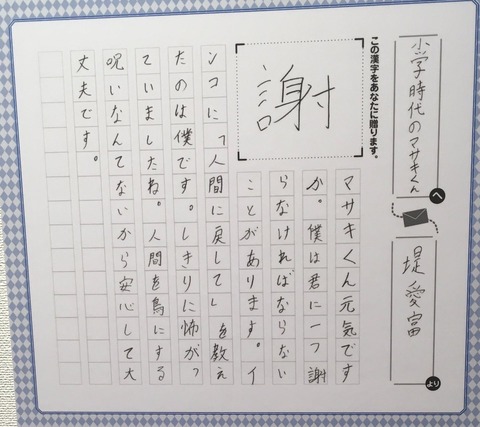 小学時代のマサキくんへ
堤 愛富より
この漢字をあなたに贈ります。
謝
マサキくん元気です
か。僕は君に一つ謝
らなければならない
ことがあります。イ
ンコに「人間に戻して」を教え
たのは僕です。しきりに怖がっ
ていましたね。人間を鳥にする
呪いなんてないから安心して大
丈夫です。